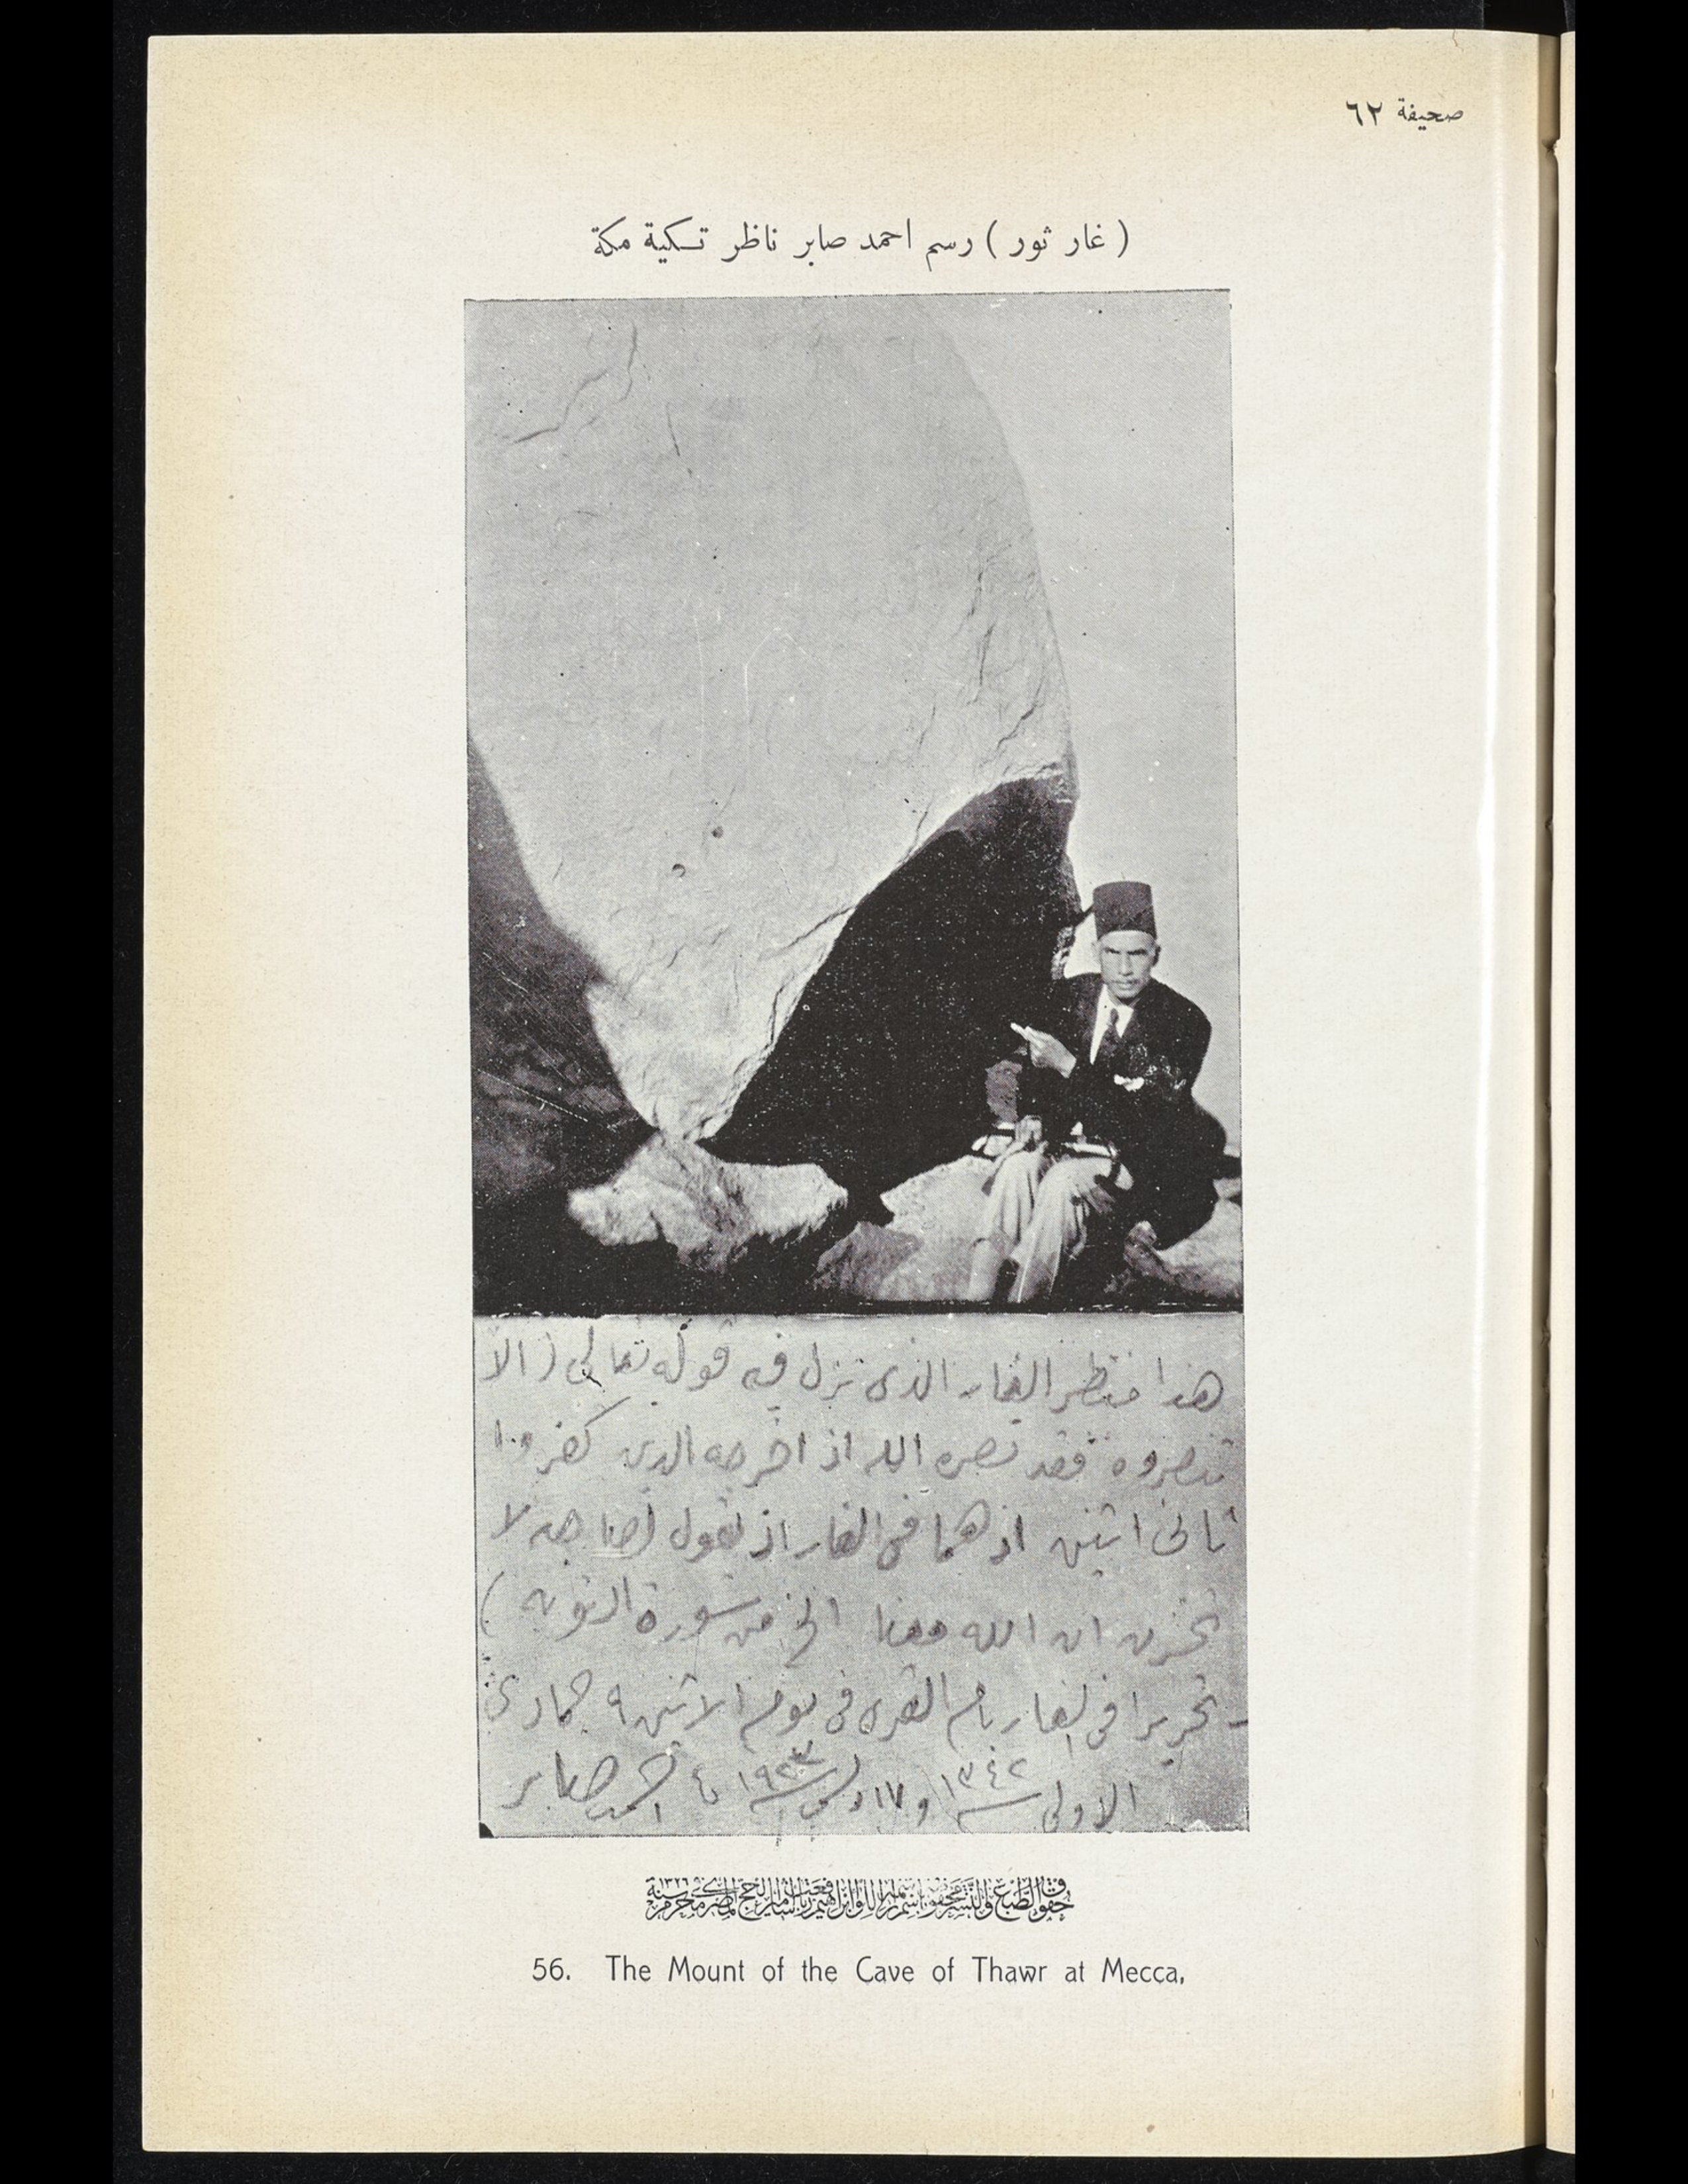 صحيفة ٦٢
( غار ثور ) رسم احمد صابر ناظر تكية مكة
هذا منظر الغار الذى نزل فيه قوله تعالى ( الا
تنصروه فقد نصره الله اذ اخرجه الذين كفروا
ثانى اثنين اذ هما فى الغار اذ يقول لصاحبه لا
تحزن ان الله معنا الخ من سورة التوبه )
تحريرا فى الغار بام القرى فى يوم الاثنين ٩ جمادى
الاولى سنة ١٣٤٢ و ١٧ سنة ١٩٢٣ احمد صابر
حقوق الطبع والنشر محفوظة باسم اللواء ابراهيم رفعت باشا امير الحج المصرى محرم سنة
56. The Mount of the Cave of Thawr at Mecca,